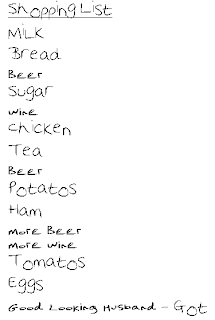 Shopping List
Milk
Bread
Beer
Sugar
Wine
Chicken
Tea
Beer
Potatos
Ham
More Beer
More Wine
Tomatos
Eggs
Good Looking Husband - Got